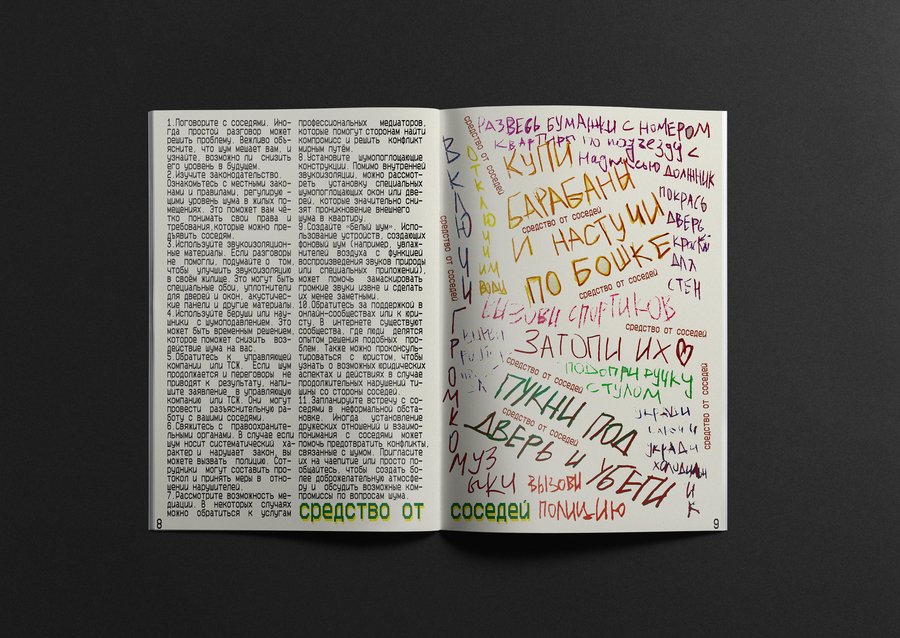 1.Поговорите с соседями. Ино-
гда простой разговор может
решить проблему. Вежливо объ-
ясните, что шум мешает вам, и
узнайте, возможно ли снизить
его уровень в будущем.
2.Изучите законодательство.
Ознакомьтесь с местными зако-
нами и правилами, регулирую-
щими уровень шума в жилых по-
мещениях. Это поможет вам чё-
тко понимать свои права и
требования,которые можно пре-
дъявить соседям.
3.Используйте звукоизоляцион-
ные материалы. Если разговоры
не помогли, подумайте о том,
чтобы улучшить звукоизоляцию
в своём жилище. Это могут быть
специальные обои, уплотнители
для дверей и окон, акустичес-
кие панели и другие материалы.
4.Используйте беруши или нау-
шники с шумоподавлением. Это
может быть временным решением,
которое поможет снизить воз-
действие шума на вас.
5.Обратитесь к управляющей
компании или ТСЖ. Если шум
продолжается и переговоры не
приводят к результату, напи-
шите заявление в управляющую
компанию или ТСЖ. Они могут
провести разъяснительную ра-
боту с вашими соседями.
6.Свяжитесь с правоохраните-
льными органами. В случае если
шум носит систематический ха-
рактер и нарушает закон, вы
можете вызвать полицию. Сот-
рудники могут составить про-
токол и принять меры в отно-
шении нарушителей.
7.Рассмотрите возможность ме-
диации. В некоторых случаях
можно обратиться к услугам
профессиональных медиаторов,
которые помогут сторонам найти
компромисс и решить конфликт
мирным путём.
8.Установите шумопоглощающие
конструкции. Помимо внутренней
звукоизоляции, можно рассмот-
реть установку специальных
шумопоглощающих окон или две-
рей, которые значительно сни-
зят проникновение внешнего
шума в квартиру.
9.Создайте «белый шум». Испо-
льзование устройств, создающих
фоновый шум (например, увлаж-
нителей воздуха с функцией
воспроизведения звуков природы
или специальных приложений),
может помочь замаскировать
громкие звуки извне и сделать
их менее заметными.
10.Обратитесь за поддержкой в
онлайн-сообществах или к юри-
сту. В интернете существуют
сообщества, где люди делятся
опытом решения подобных про-
блем. Также можно проконсуль-
тироваться с юристом, чтобы
узнать о возможных юридических
аспектах и действиях в случае
продолжительных нарушений ти-
шины со стороны соседей.
11.Запланируйте встречу с со-
седями в неформальной обста-
новке. Иногда установление
дружеских отношений и взаимо-
понимания с соседями может
помочь предотвратить конфликты,
связанные с шумом. Пригласите
их на чаепитие или просто по-
общайтесь, чтобы создать бо-
лее доброжелательную атмосфе-
ру и обсудить возможные ком-
промиссы по вопросам шума.
средство от
8
РАЗВЕСЬ БУМАЖКИ С НОМЕРОМ
КВАРТИРЫ ПО ПОДЪЕЗДУ С
НАДПИСЬЮ ДОЛЖНИК
средство от соседей
ОТКЛЮЧИ ИМ
ВОДУ
КУПИ
БАРАБАНЫ
средство от соседей
И НАСТУЧИ
ПО БОШКЕ
средство от соседей
ПОКРАСЬ
ДВЕРЬ
КРАСКОЙ
ДЛЯ
СТЕН
средство от соседей
ВКЛЮЧИ ГРОМКО МУЗ
ЫКИ
ВЫЗОВИ СПОРТИКОВ
средство от соседей
ЗАТОПИ ИХ
средство от соседей
ПОДОПРИ РУЧКУ
СТУЛОМ
средство от соседей
ПУКНИ ПОД
средство от соседей
ДВЕРЬ И УБЕГИ
укради
ключи
укради
холодильн
и
к
ВЫЗОВИ
ПОЛИЦИЮ
соседей
9